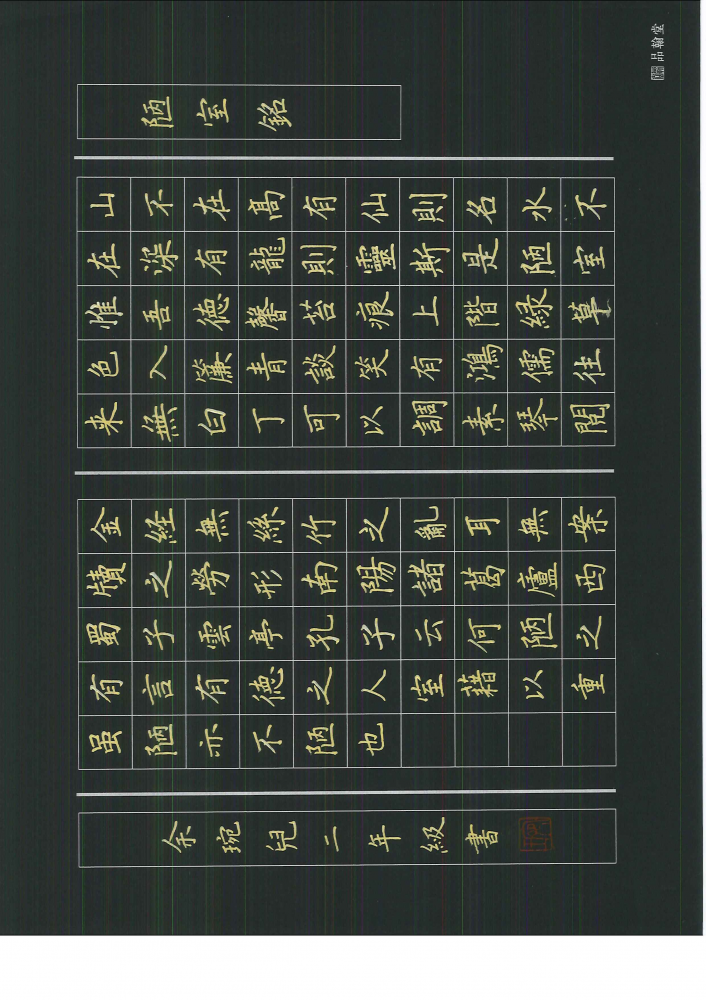 陋室銘
山不在高有仙則名水不
在深有龍則靈斯是陋室
惟吾德馨苔痕上階緑草
色入簾青談笑有鴻儒往
来無白丁可以調素琴閲
金経無絲竹之亂耳無案
牘之勞形南陽諸葛廬西
蜀子雲亭孔子云何陋之
有言有德之人室藉以重
虽陋亦不陋也
余琬兒二年級書
品翰堂